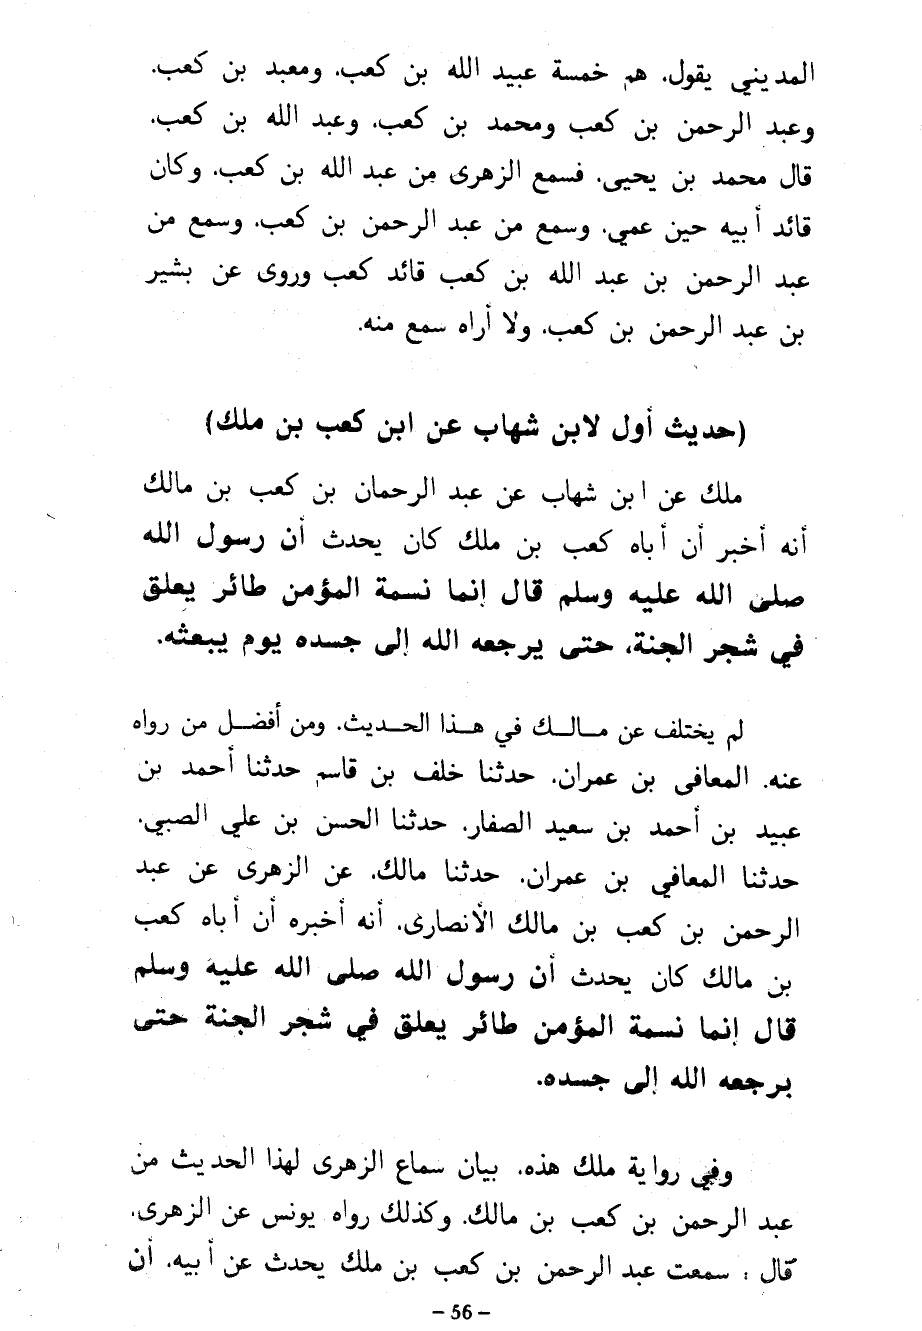 المديني يقول. هم خمسة عبيد الله بن كعب. ومعبد بن كعب.
وعبد الرحمن بن كعب ومحمد بن كعب. وعبد الله بن كعب.
قال محمد بن يحيى. فسمع الزهرى من عبد الله بن كعب. وكان
قائد أبيه حين عمي. وسمع من عبد الرحمن بن كعب. وسمع من
عبد الرحمن بن عبد الله بن كعب قائد كعب وروى عن بشير
بن عبد الرحمن بن كعب. ولا أراه سمع منه.
(حديث أول لابن شهاب عن ابن كعب بن ملك)
ملك عن ابن شهاب عن عبد الرحمان بن كعب بن مالك
أنه أخبر أن أباه كعب بن ملك كان يحدث أن رسول الله
صلى الله عليه وسلم قال إنما نسمة المؤمن طائر يعلق
في شجر الجنة، حتى يرجعه الله إلى جسده يوم يبعثه.
لم يختلف عن مالك في هذا الحديث. ومن أفضل من رواه
عنه. المعافى بن عمران. حدثنا خلف بن قاسم حدثنا أحمد بن
عبيد بن أحمد بن سعيد الصفار. حدثنا الحسن بن علي الصبي.
حدثنا المعافي بن عمران. حدثنا مالك. عن الزهرى عن عبد
الرحمن بن كعب بن مالك الأنصارى. أنه أخبره أن أباه كعب
بن مالك كان يحدث أن رسول الله صلى الله عليه وسلم
قال إنما نسمة المؤمن طائر يعلق في شجر الجنة حتى
يرجعه الله إلى جسده.
وفي رواية ملك هذه. بيان سماع الزهرى لهذا الحديث من
عبد الرحمن بن كعب بن مالك. وكذلك رواه يونس عن الزهرى.
قال : سمعت عبد الرحمن بن كعب بن ملك يحدث عن أبيه. أن
- 56 -